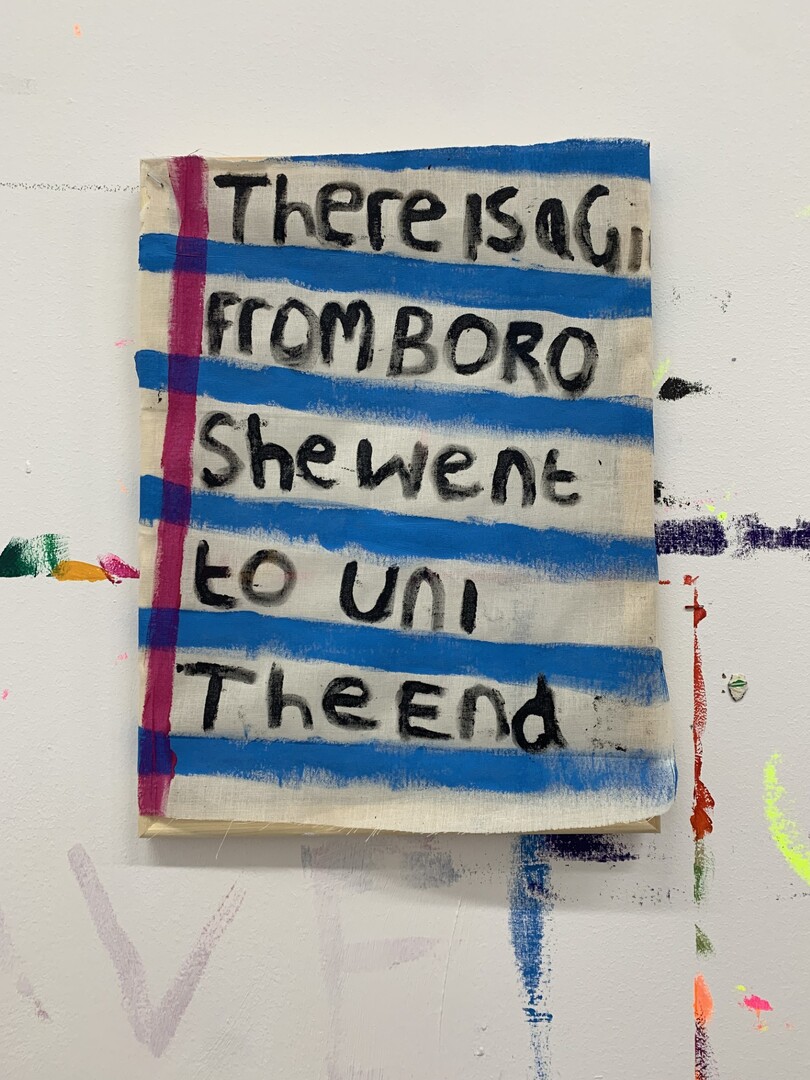 There is a Gi
From BORO
She went
to uni
The End